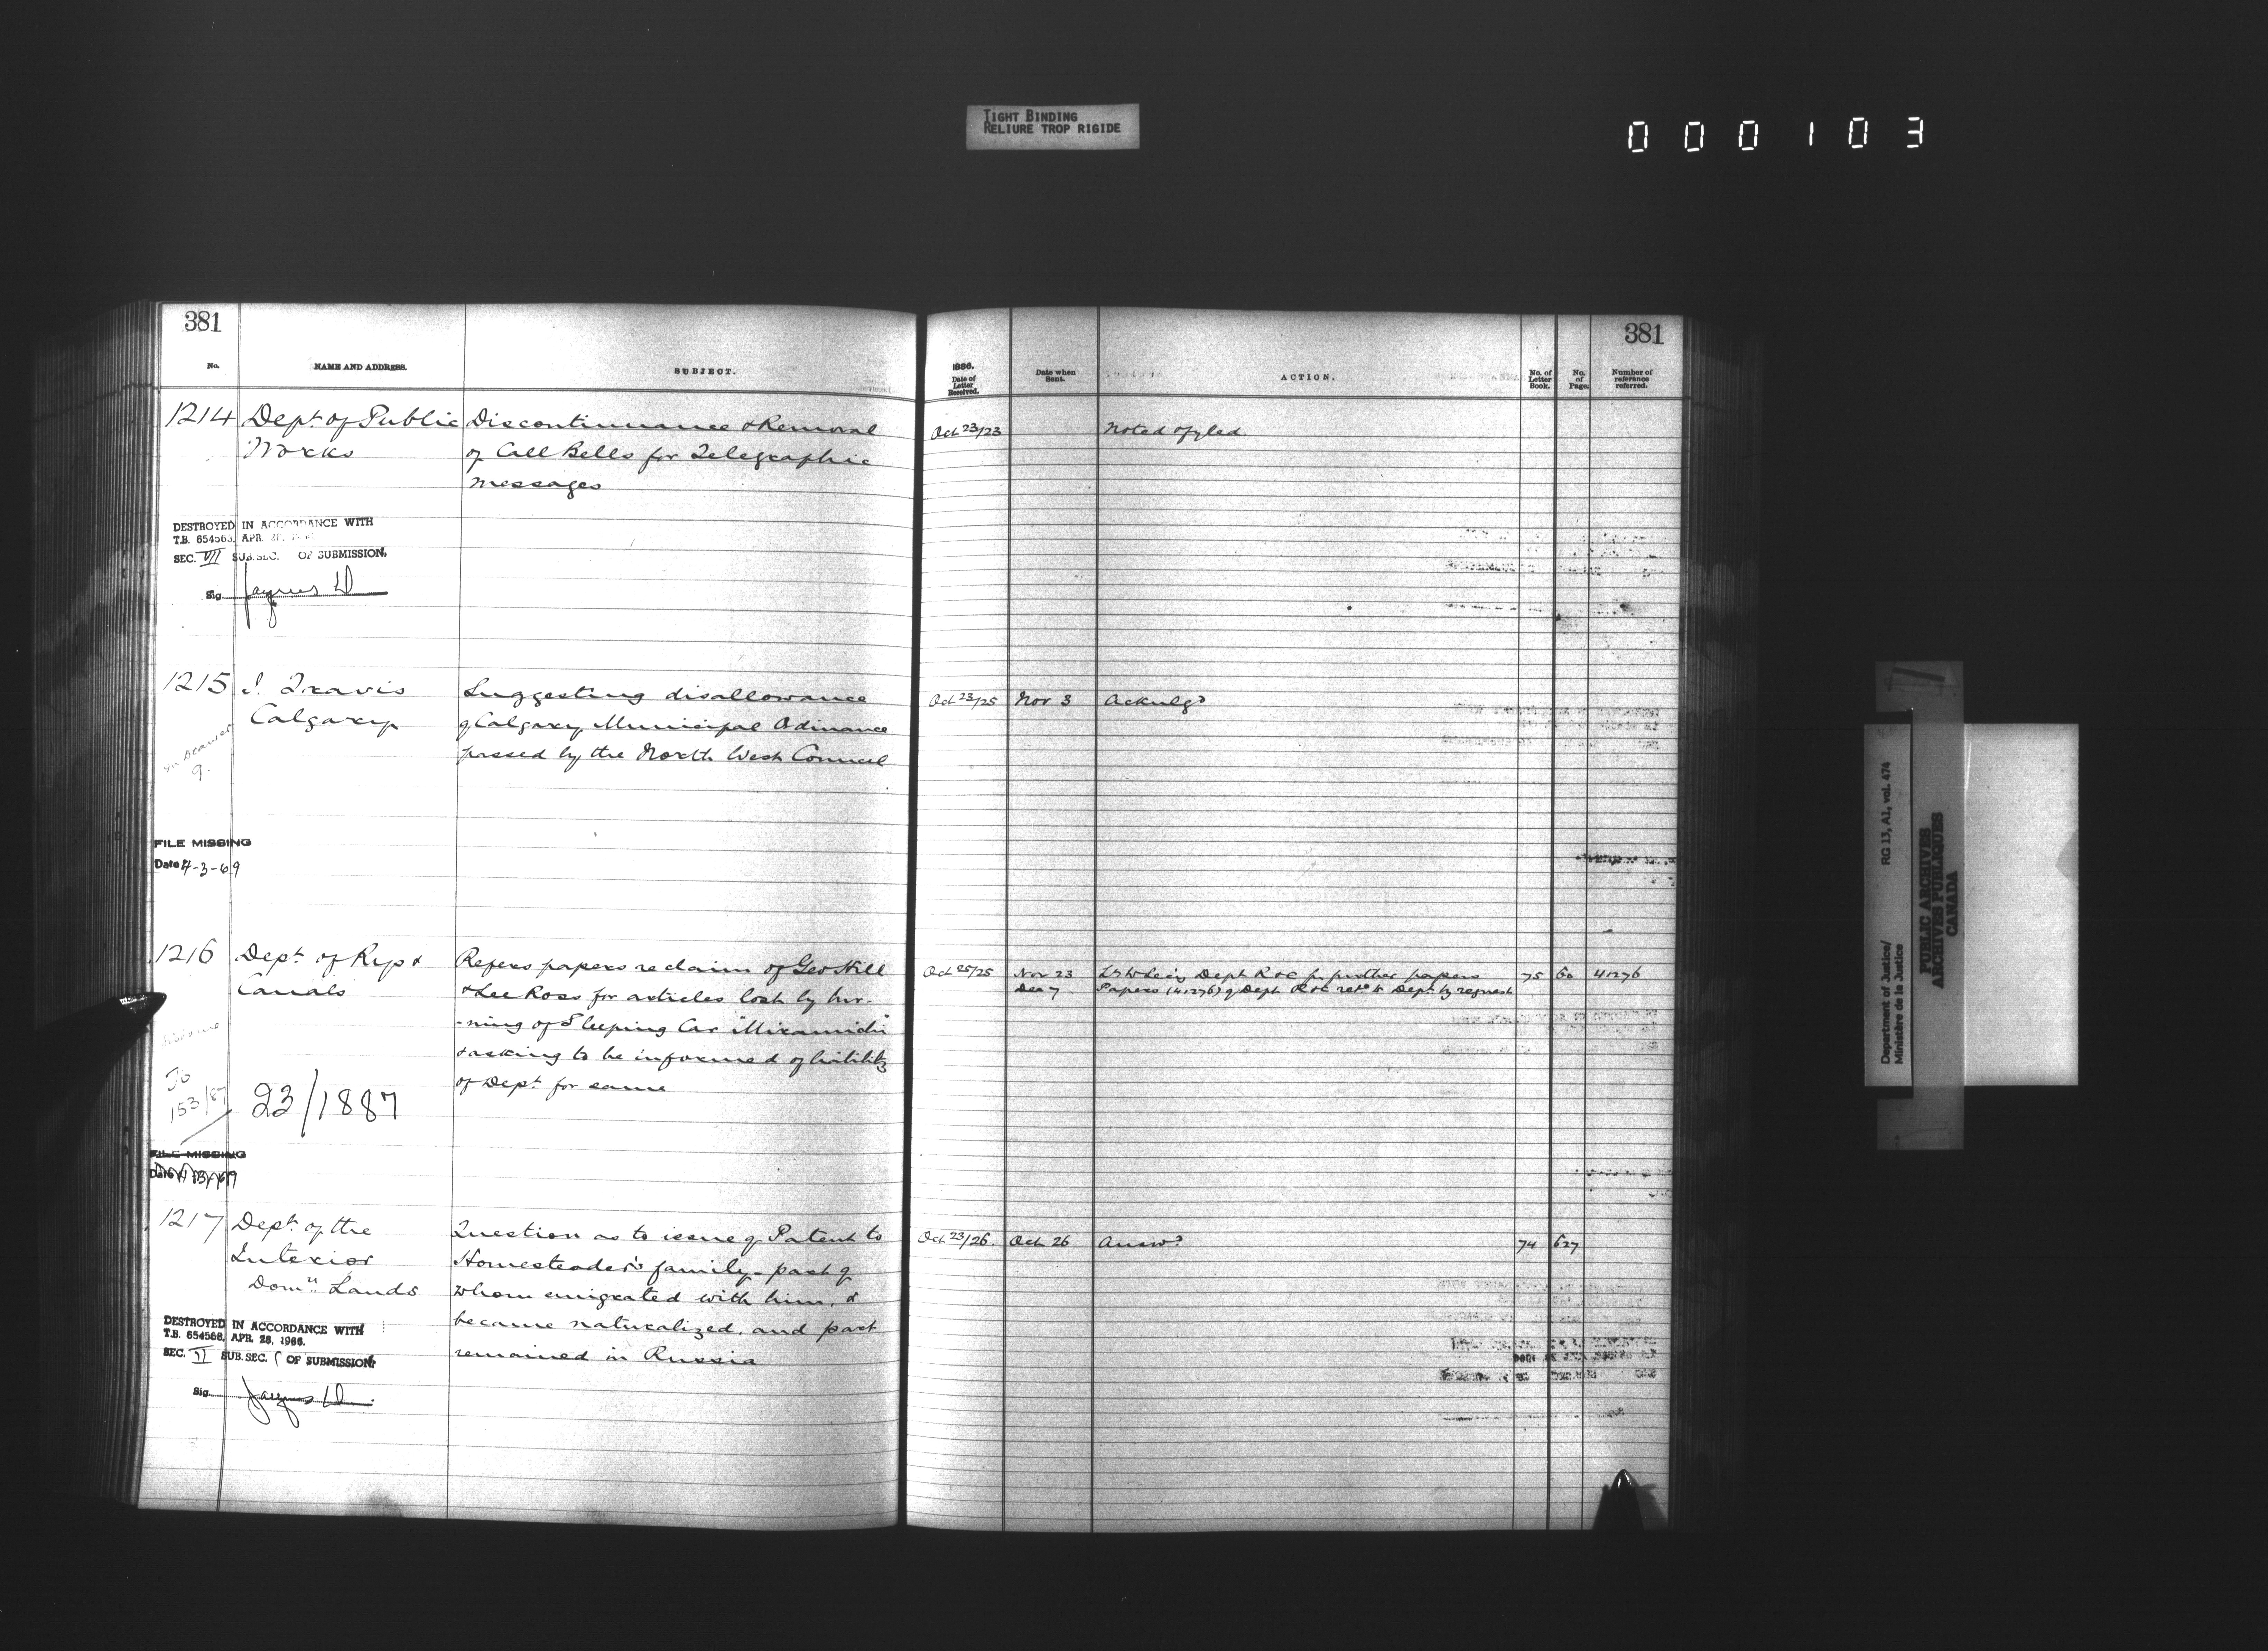 TIGHT BINDING
RELIURE TROP RIGIDE
000103
381
No. NAME AND ADDRESS. SUBJECT.
1214 Dept. of Public Works
Discontinuance & Removal
of Call Bells for Telegraphic
messages
DESTROYED IN ACCORDANCE WITH
T.B. 654563, APR.
SEC. VII SUB.SEC. OF SUBMISSION,
Sig.
1215 J. Travis
Calgary
Suggesting disallowance
of Calgary Municipal Ordinance
passed by the North West Council
9.
FILE MISSING
Date 4-3-69
1216 Dept. of Rys &
Canals
Refers papers re claim of Geo Still
& Lee Ross for articles lost by bur-
-ning of Sleeping Car "Miramichi"
& asking to be informed of liability
of Dept. for same
To
153/87
23/1887
FILE MISSING
Date
1217 Dept. of the
Interior
Domn. Lands
Question as to issue of Patent to
Homesteader's family - part of
whom emigrated with him, &
became naturalized, and part
remained in Russia
DESTROYED IN ACCORDANCE WITH
T.B. 654568, APR. 28, 1966.
SEC. VI SUB.SEC. ( OF SUBMISSION,
Sig.
381
1886.
Date of Letter Received. Date when Sent. ACTION. No. of Letter Book. No. of Page. Number of reference referred.
Oct 23/23 Noted & fyled
Oct 23/25 Nov 3 Acknlgd
Oct 25/25 Nov 23 Dept R & C for further papers 75 60 41276
Dec 7 Papers (41276) of Dept R & C retd to Dept by request
Oct 23/26. Oct 26 Answd 74 627
Department of Justice/ RG 13, A1, vol. 474
Ministère de la Justice
PUBLIC ARCHIVES
ARCHIVES PUBLIQUES
CANADA